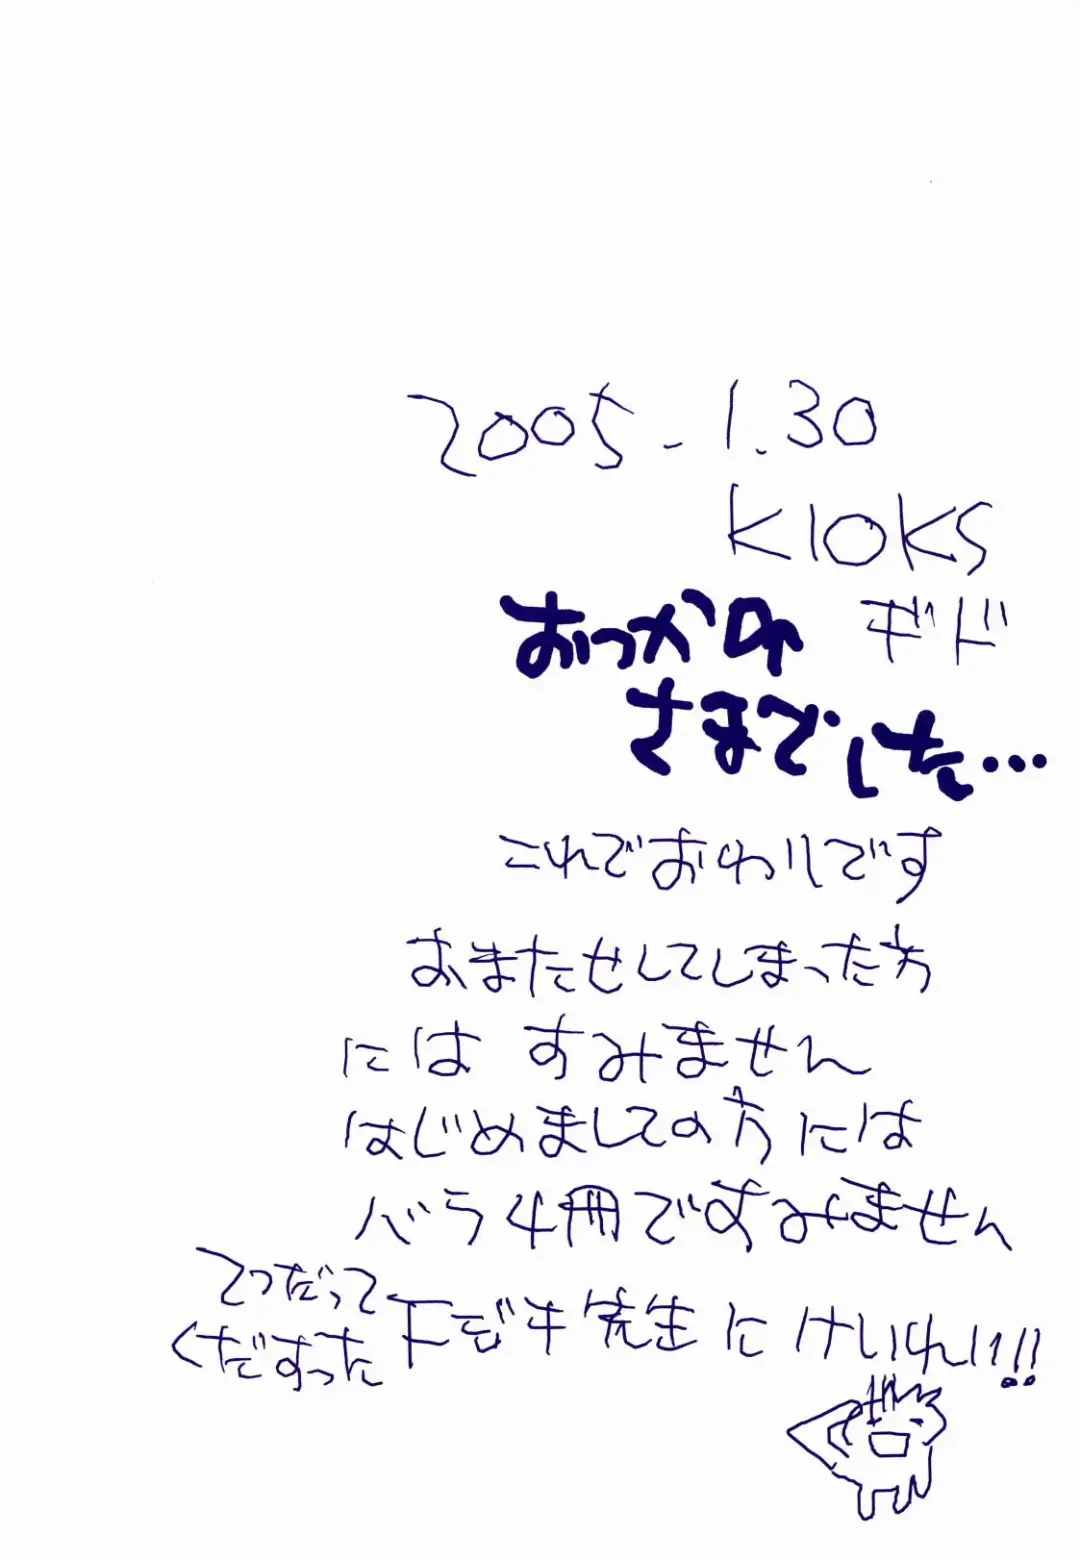 2005.1.30
KIOKS
ギド
おつかれ
さまでした…
これでおわりです
おまたせしてしまった方
にはすみません
はじめましての方には
バラ4冊ですみません
てつだって
くだすった
先生にけいれい!!